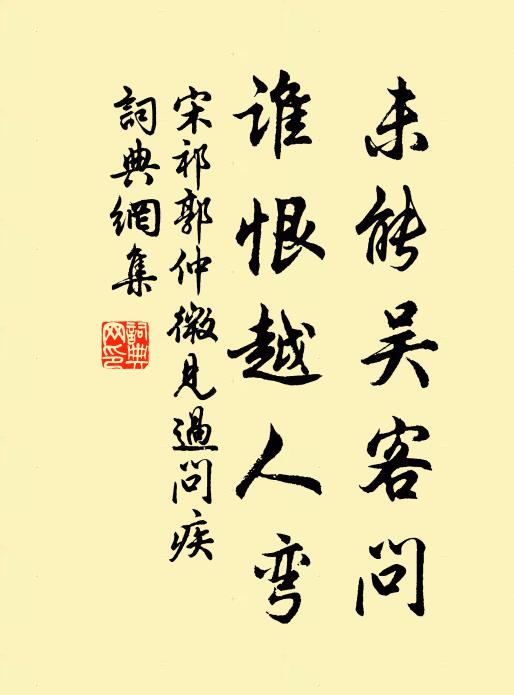 未能吴客问
谁恨越人弯
宋祁郭仲微见過问疾
詞典網集
詞典
网印